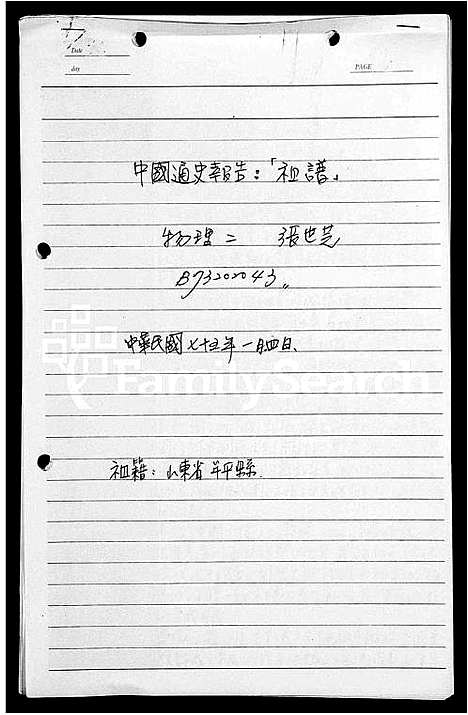 Date
day
PAGE
中國通史報告：「祖譜」
物理二 張世芸
B7320243
中華民國七十五年一月四日、
FamilySearch
祖籍：山東省牟平縣.